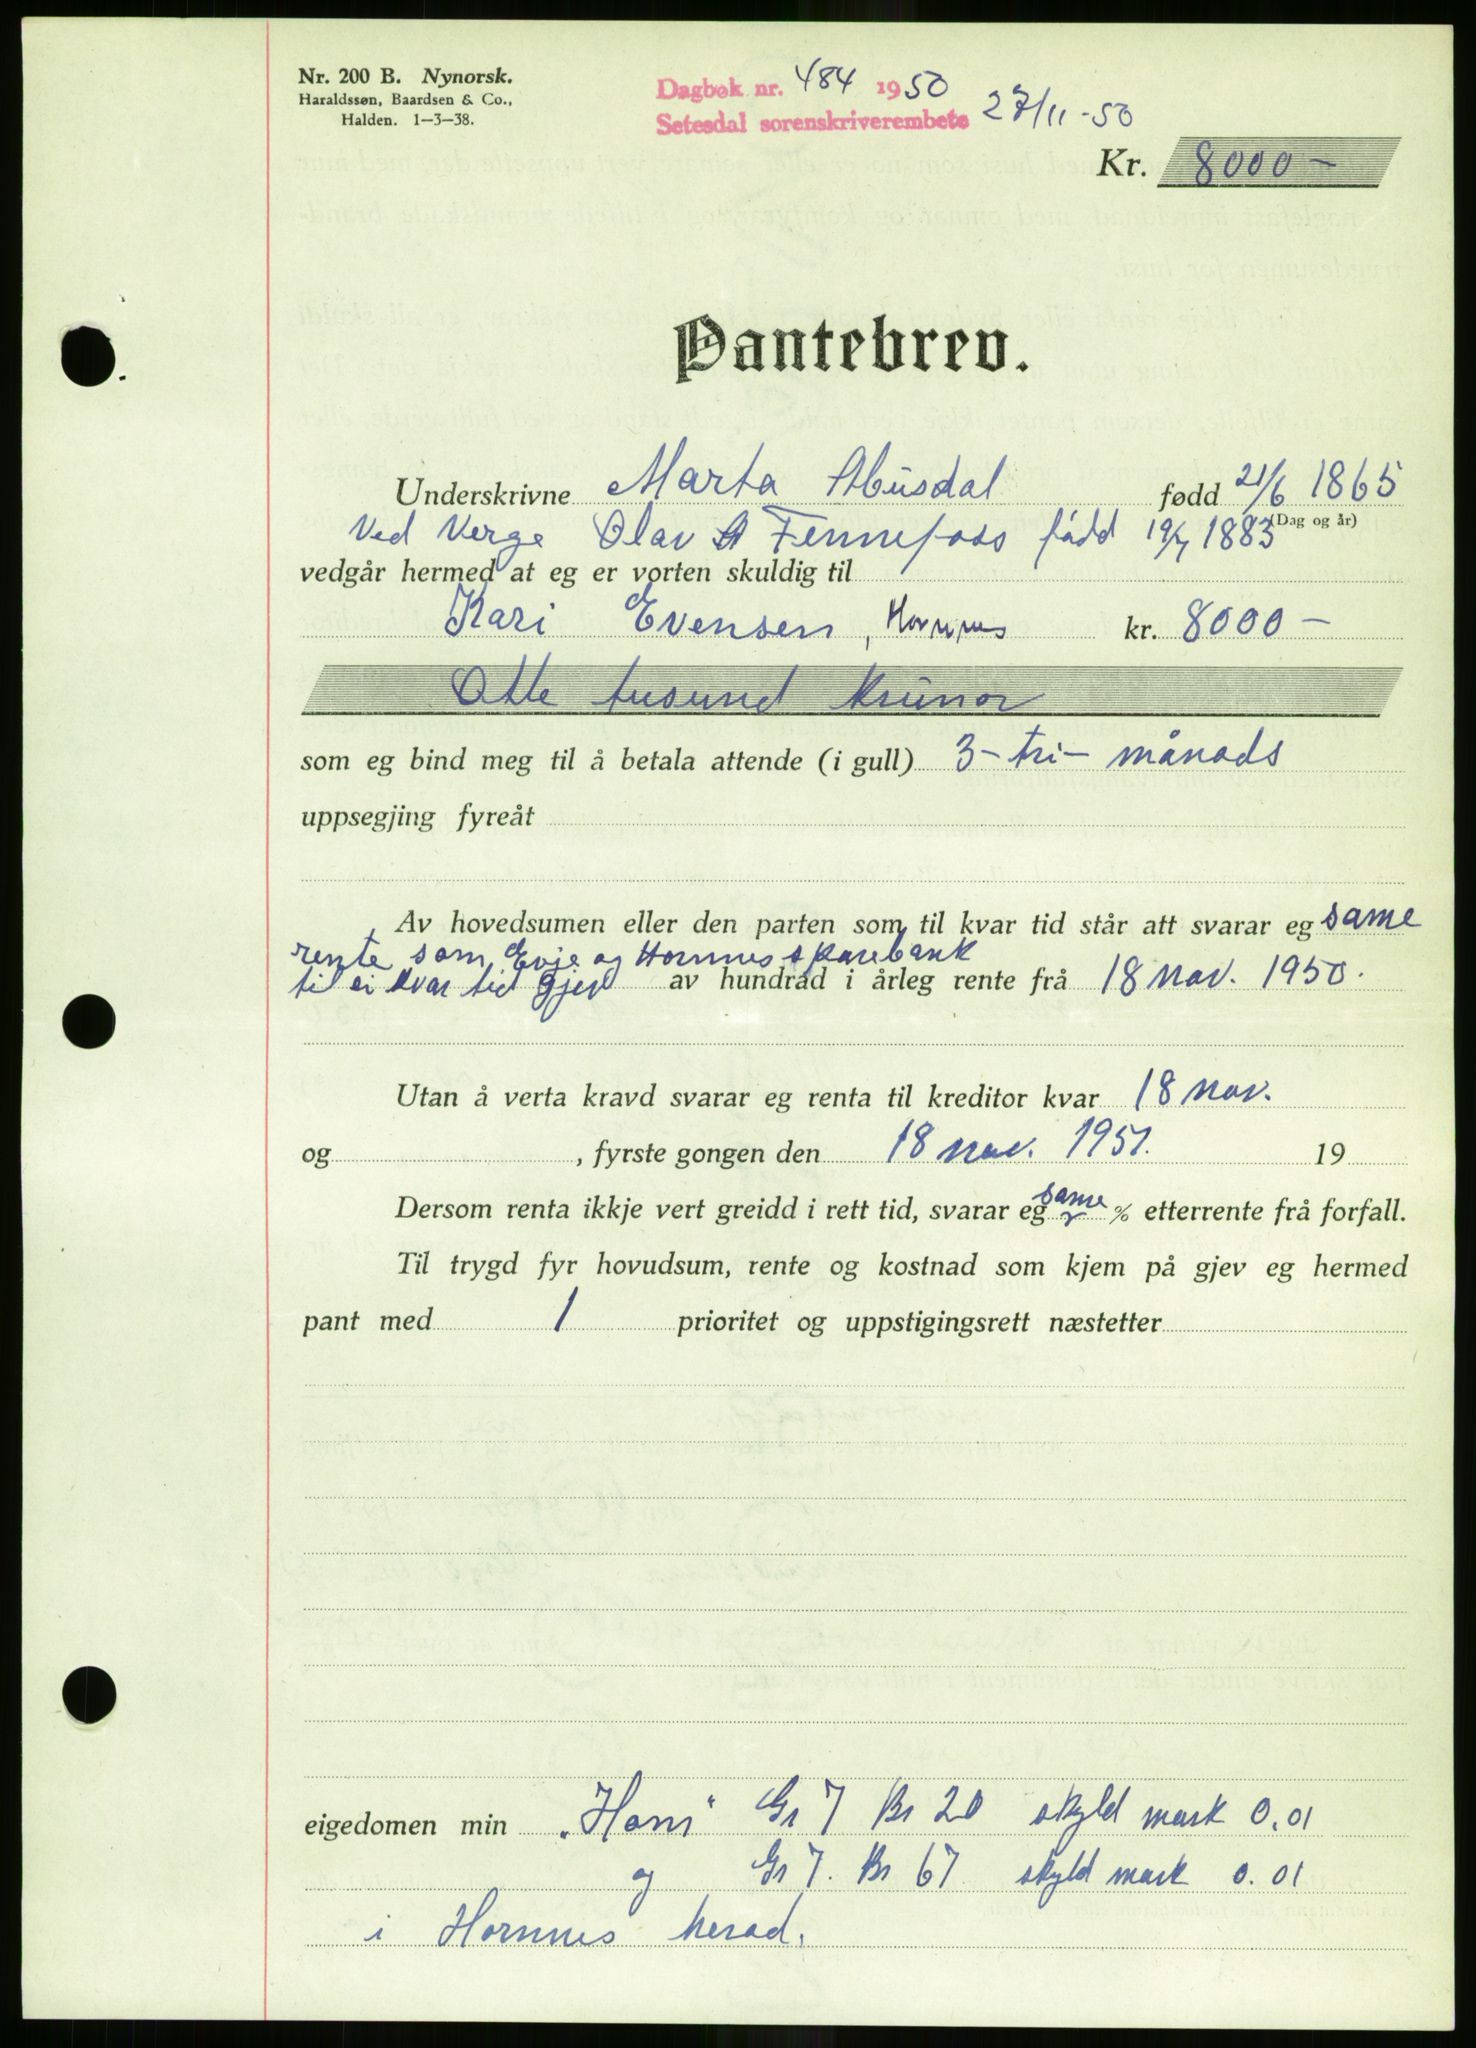 Nr. 200 B. Nynorsk.
Haraldssøn, Baardsen & Co.,
Halden. 1—3—38.
Dagbok nr. 484 1950
Setesdal sorenskriverembete 27/11-50
Kr. 8000 —
Pantebrev.
Underskrivne Marta Abusdal fødd 21/6 1865
(Dag og år)
Ved Verge Olav Fennefoss fødd 1883
vedgår hermed at eg er vorten skuldig til
Kari Evensen, Hornnes kr. 8000 —
Otte tusund krunor
som eg bind meg til å betala attende (i gull) 3 — tri — månads
uppsegjing fyreåt
Av hovedsumen eller den parten som til kvar tid står att svarar eg same
rente som Evje og Hornnes sparebank
til ei kvar tid gjev av hundrad i årleg rente frå 18 nov. 1950.
Utan å verta kravd svarar eg renta til kreditor kvar 18 nov.
og , fyrste gongen den 18 nov. 1951. 19
Dersom renta ikkje vert greidd i rett tid, svarar eg same % etterrente frå forfall.
Til trygd fyr hovudsum, rente og kostnad som kjem på gjev eg hermed
pant med 1 prioritet og uppstigingsrett næstetter
eigedomen min „Hom" Gr 7 Br 20 skyld mark 0.01
og Gr 7. Br 67 skyld mark 0.01
i Hornnes herad.